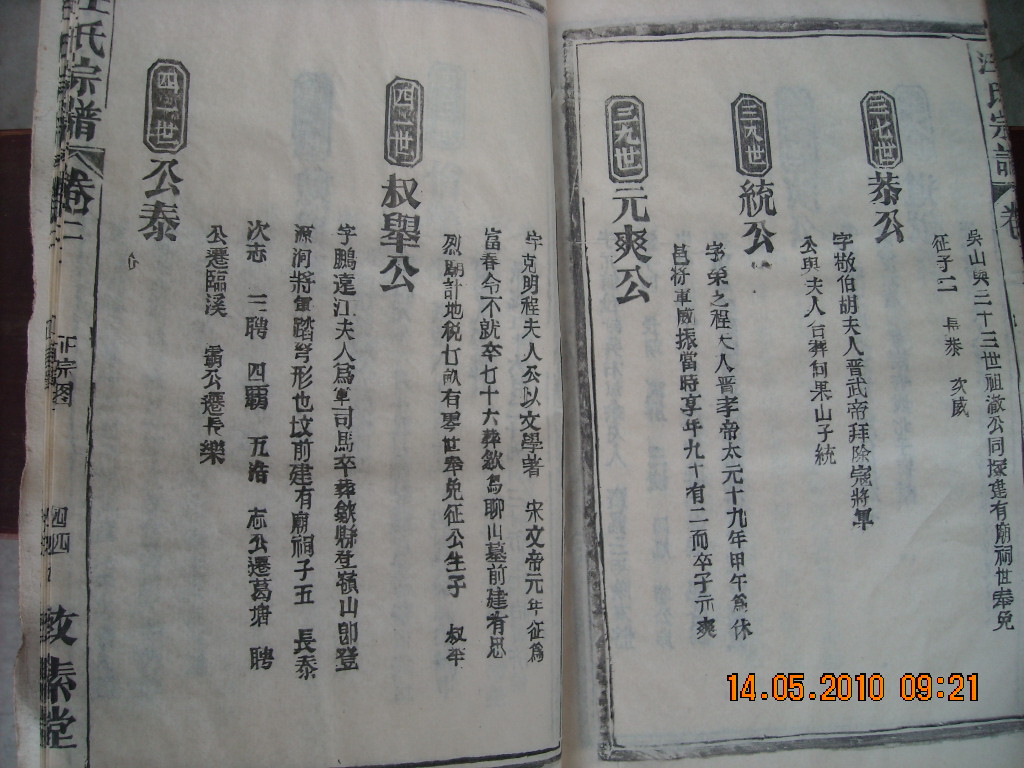 汪氏宗譜 卷
吳山與三十三世祖澈公同塚建有廟祠世奉免
征子二 長恭 次威
三七世 恭公
字敬伯胡夫人晋武帝拜除寇將軍
公與夫人合葬何果山子統
三八世 統公
字榮之程夫人晋孝帝太元十九年甲午為休
邑將軍威振當時享年九十有二而卒子元爽
三九世 元爽公
字克明程夫人公以文學著 宋文帝元年征為
富春令不就卒七十六葬歙烏聊山墓前建有忠
烈廟計地稅七畝有零世奉免征公生子 叔舉
四十世 叔舉公
字鵬遠江夫人為軍司馬卒葬歙縣登嶺山即登
源河將軍踏弩形也坟前建有廟祠子五 長泰
次志 三聘 四覇 五浩 志公遷葛塘 聘
公遷臨溪 霸公遷長樂
四一世 公泰
汪氏宗譜 卷二 正宗图 四四 敦素堂
14.05.2010 09:21